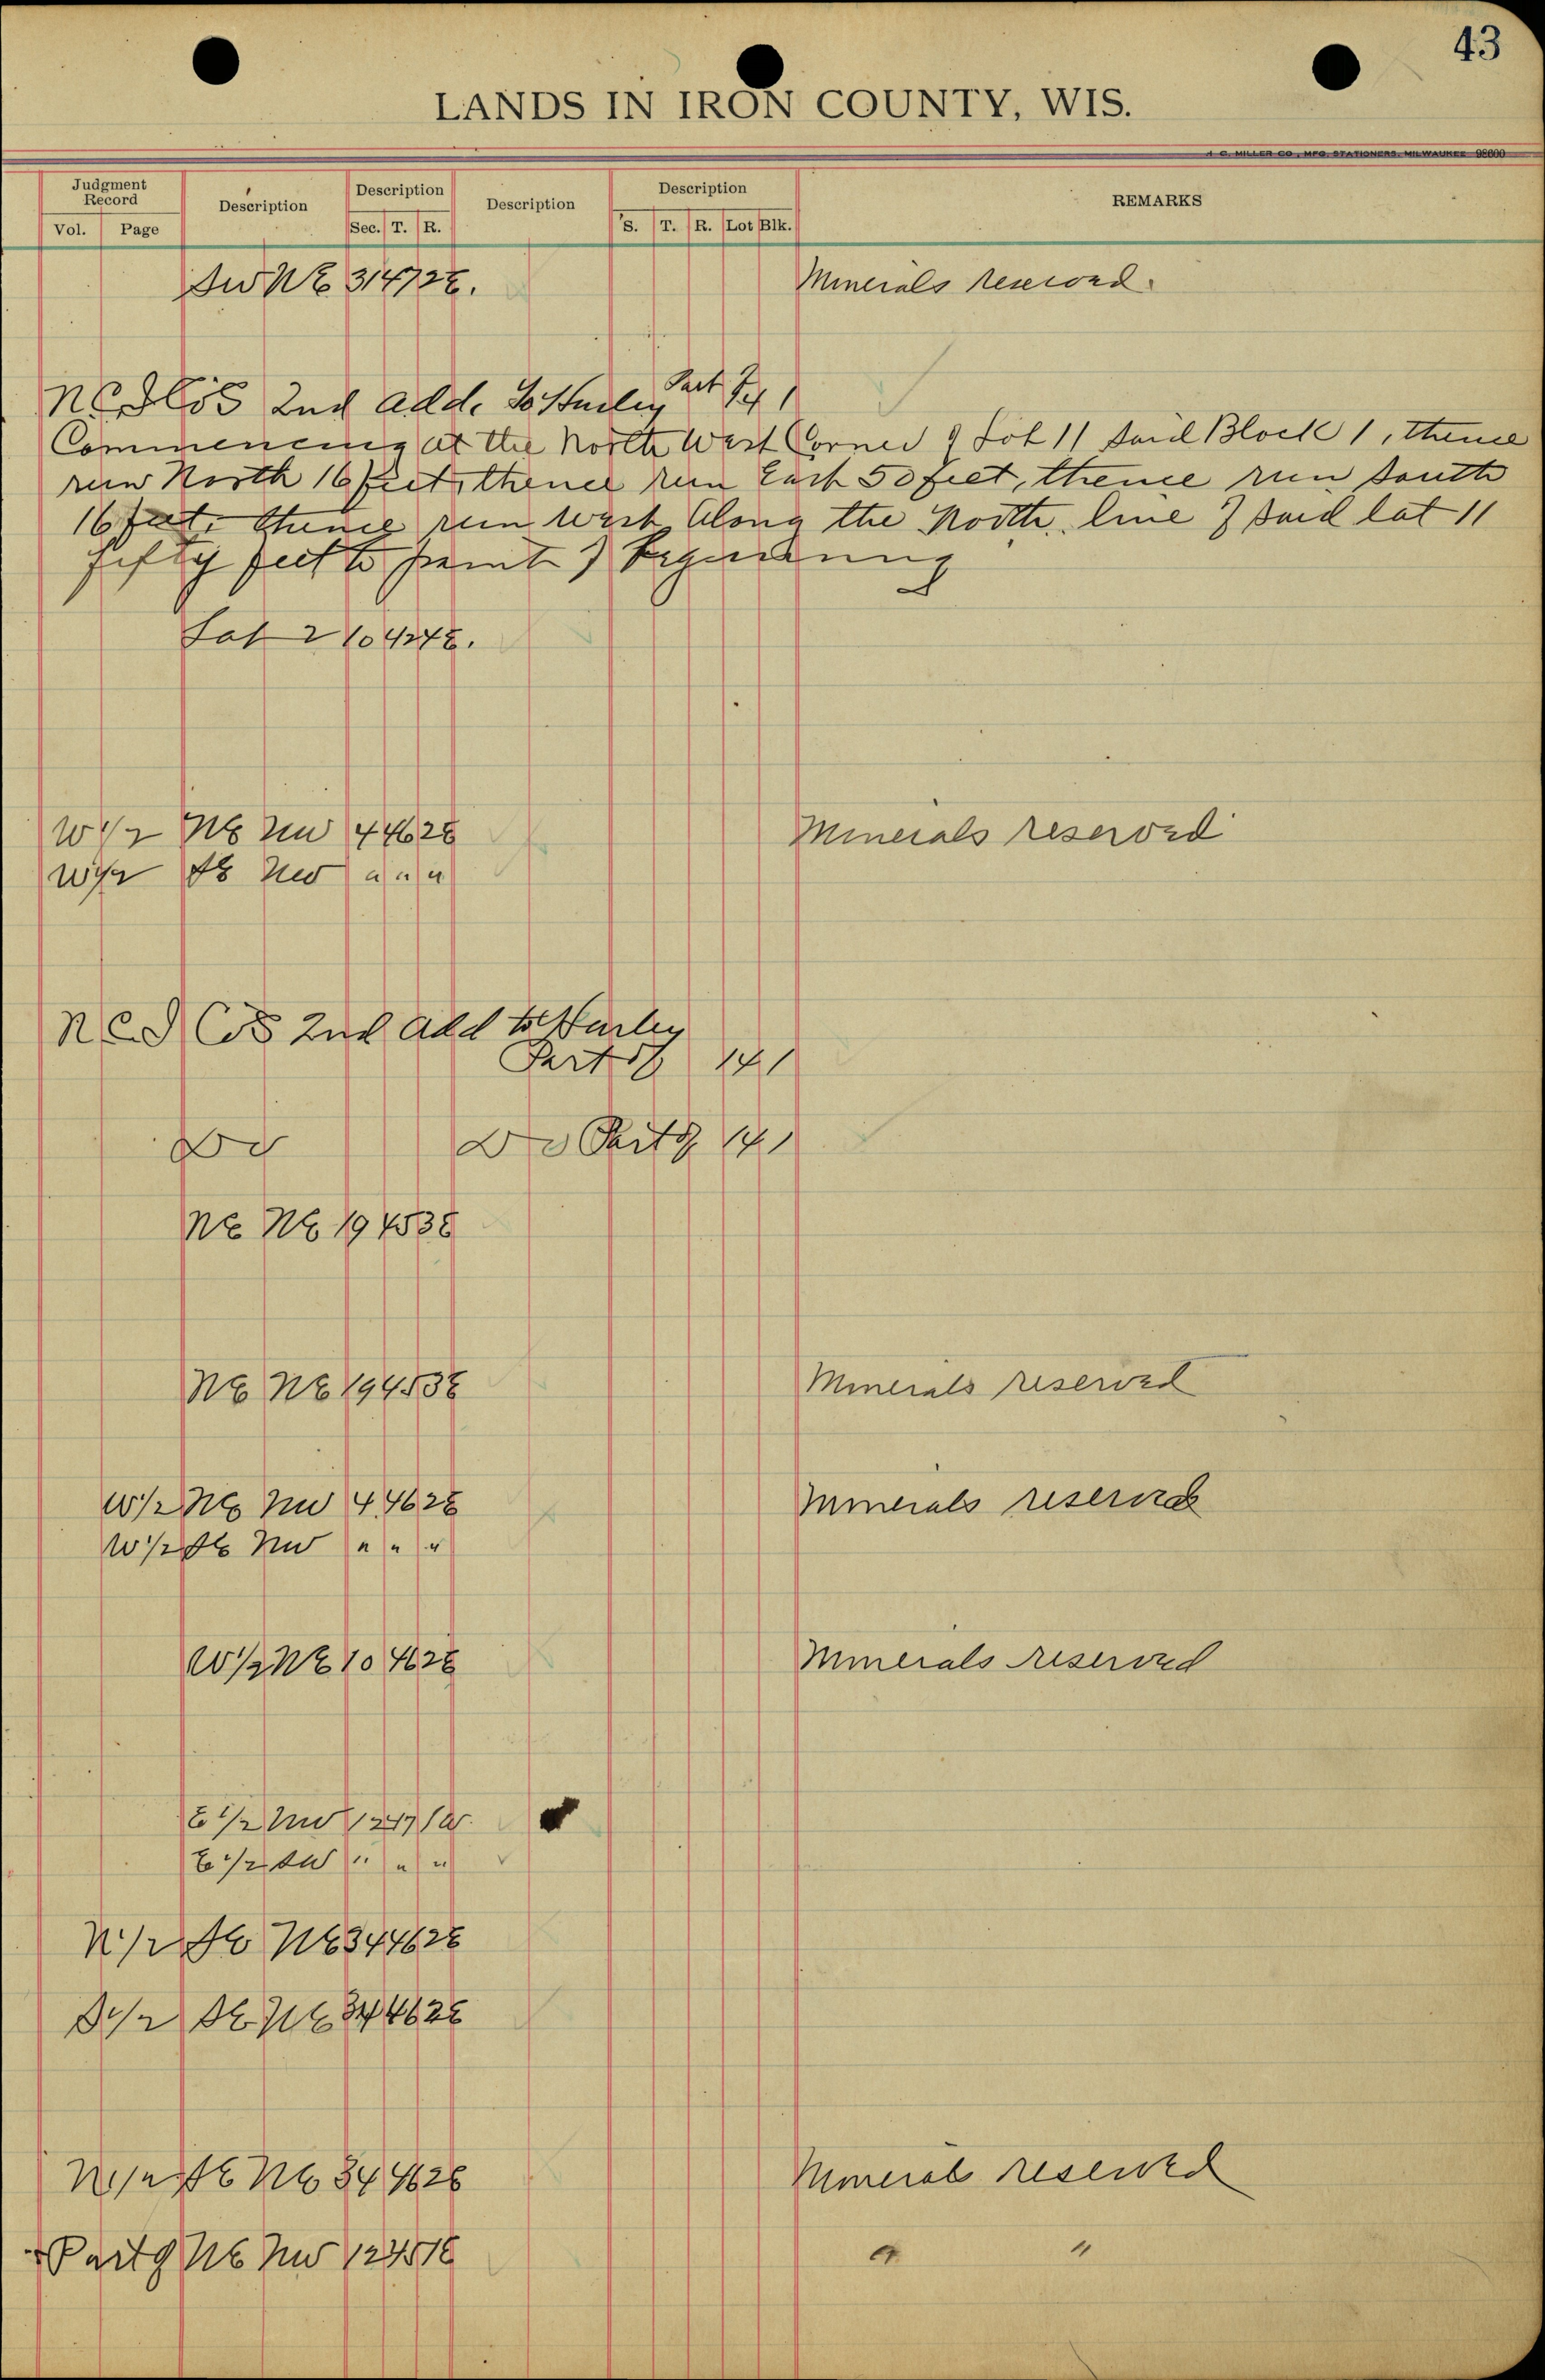 43
LANDS IN IRON COUNTY, WIS.
H. C. MILLER CO., MFG. STATIONERS, MILWAUKEE 98600
Judgment Record Description Description Description Description REMARKS
Vol. Page Sec. T. R. S. T. R. Lot Blk.
SW NE 31 47 2E. Minerals reserved.
2nd Add. To Hurley Part of 1
Commencing at the North West Corner of Lot 11 said Block 1, thence
run North 16 feet, thence run East 50 feet, thence run South
16 feet, thence run West Along the North line of said lot 11
fifty feet to point of beginning
Lot 2 10 42 4E.
W1/2 NE NW 4 46 2E Minerals reserved
W1/2 SE NW " " "
2nd Add to Hurley
Part of 14 1
Do Do Part of 14 1
NE NE 19 45 3E
NE NE 19 45 3E Minerals reserved
W1/2 NE NW 4 46 2E Minerals reserved
W1/2 SE NW " " "
W1/2 NE 10 46 2E Minerals reserved
E1/2 NW 12 47 1W.
E1/2 SW " " "
N1/2 SE NE 34 46 2E
S1/2 SE NE 34 46 2E
N1/2 SE NE 34 46 2E Mineral reserved
Part of NE NW 12 45 1E " "